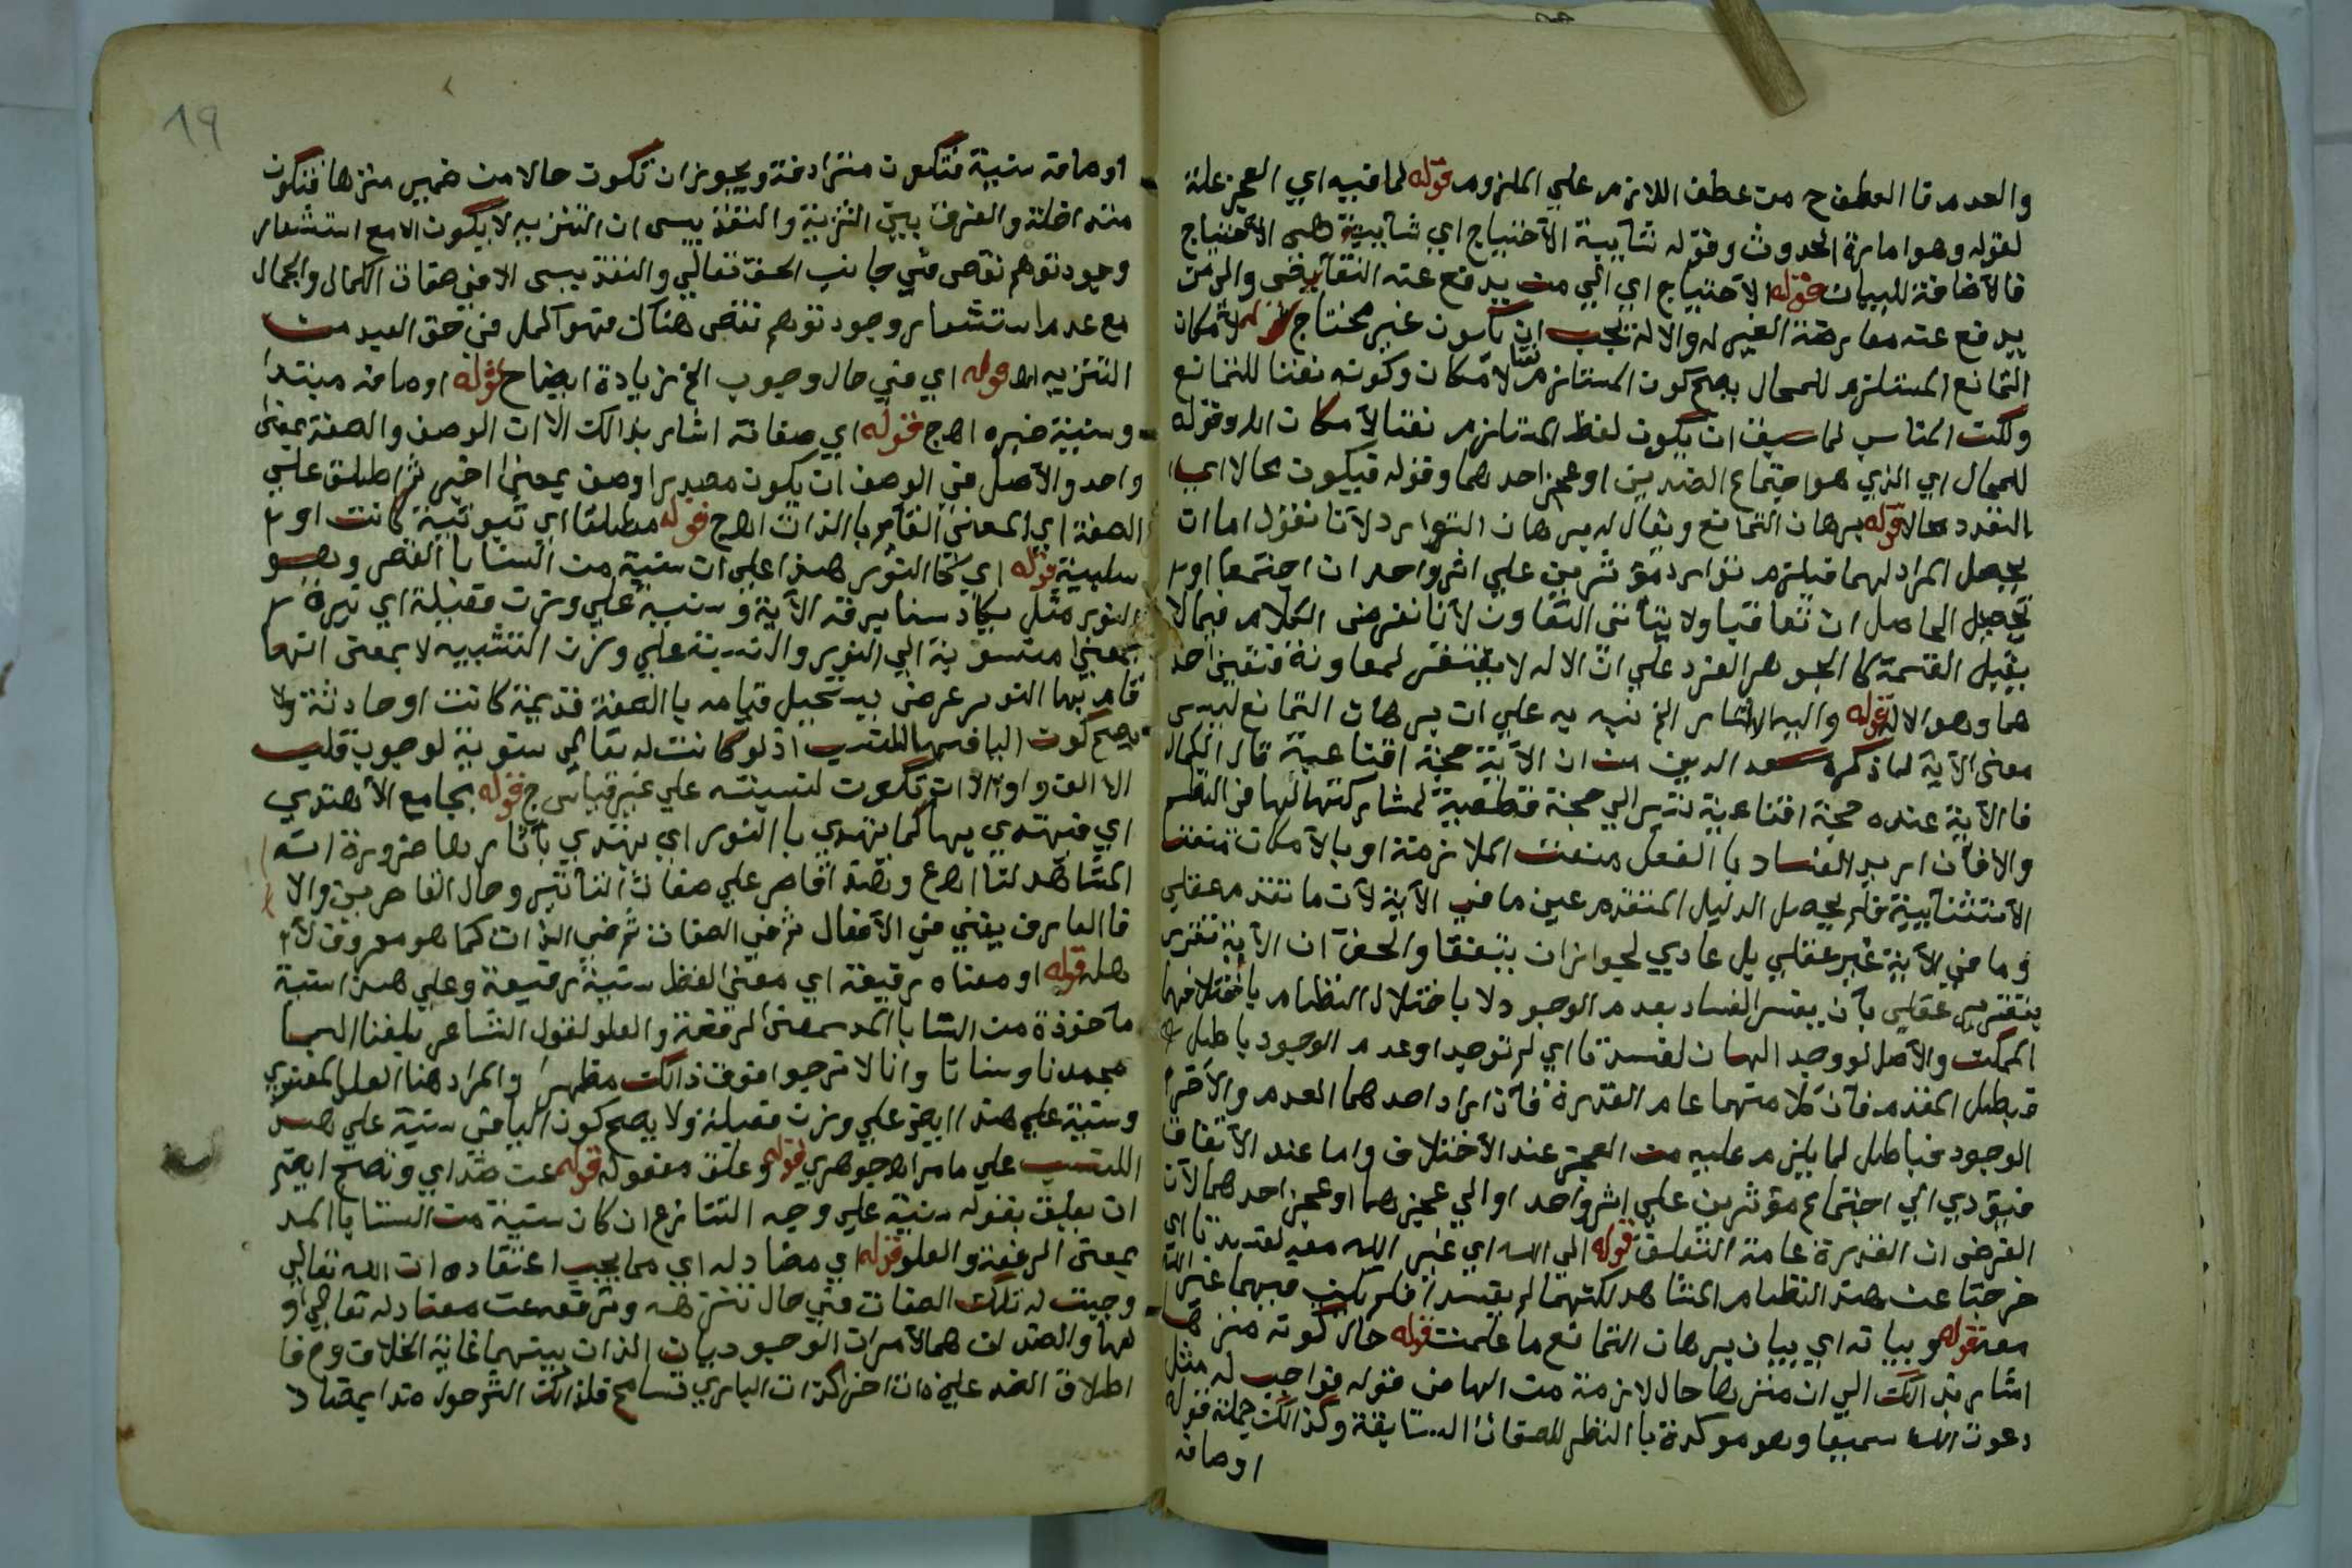 والعدم فا العطف ح من عطف اللازم على الملزوم قوله لما فيه اي العجز علة
لقوله وهو امارة الحدوث وقوله شآيبة الآحتياج اي شآيبة هى الآحتياج
فالآضافة للبيان قوله الآحتياج اي الي من يدفع عنه النقآيض والى من
يدفع عنه معارضة الغير له والاله يجب ان يكون غير محتاج قوله لامكان
التمانع المستلزم للمحال يصح كون المستلزم نعتا لامكان وكونه نعتا للتمانع
ولكن المناسب لما سيف ان يكون لفظ المستلزم نعتا لآمكان اه وقوله
للمحال اي الذي هو اجتماع الضدين او عجز احدهما وقوله فيكون محالا اي
التعدد محالا قوله برهان التمانع ويقال له برهان التوارد لآنا نقول اما ان
يحصل المراد لهما فيلزم توارد مؤثرين على اثر واحد ان اجتمعا او
تحصيل الحاصل ان تعاقبا ولا يتأتى التعاون لآنا نفرض الكلام فيما لا
يقبل القسمة كا الجوهر الفرد على ان الاله لا يفتقر لمعاونة فتعين احد
هما وهو الاله قوله واليه الاشار الخ نبه به على ان برهان التمانع ليس
معنى الآية لما ذكره سعد الدين من ان الآية حجة اقناعية قال الكمال
فا الآية عنده حجة اقناعية تشير الي حجة قطعية لمشاركتها لها في النظم
والا فأن اريد الفساد با الفعل منعت الملازمة او بالآمكان منعت
الآستثنآيية فلم يحصل الدليل المتقدم عين ما في الآية لآن ما تقدم عقلى
وما في الآية غير عقلي بل عادي لجواز ان يتفقا والحق ان الآية تقرير
بتقرير عقلى بآن يفسر الفساد بعدم الوجود لا باختلال النظام باختلافهما
الممكن والآصل لو وجد الهان لفسدتا اي لم توجدا وعدم الوجود باطل
فبطل المقدم فآن كلا منهما عام القدرة فآن اراد احدهما العدم والآخر
الوجود فباطل لما يلزم عليه من العجز عند الآختلاف واما عند الآتفاق
فيؤدي الي اجتماع مؤثرين على اثر واحد او الي عجزهما او عجز احدهما لآن
الفرض ان القدرة عامة التعلق قوله الي الله اي غير الله معه لفسدتا اي
خرجتا عن هذا النظام المشاهد لكنهما لم يفسدا فلم يكن فيهما غير الله
معه قوله وبيانه اي بيان برهان التمانع ما علمت قوله حال كونه منزها
اشار بذالك الي ان منزها حال لازمة من الها من قوله فواجب له مثل
دعوت الله سميعا وهو موكدة با النظر للصفات السابقة وكذالك جملة قوله
اوصافه
19
اوصافه سنية فتكون مترادفة ويجوز ان تكون حالا من ضمير منزها فتكون
متداخلة والفرق بين التنزيه والتقديس ان التنزيه لا يكون الا مع استشعار
وجود توهم نقص في جانب الحق تعالي والتقديس الا في صفات الكمال والجمال
مع عدم استشعار وجود توهم نقص هناك فهو اكمل في حق العبد من
التنزيه اه قوله اي في حال وجوب الخ زيادة ايضاح قوله اوصافه مبتدا
وسنية خبره اه ج قوله اي صفاته اشار بذالك الا ان الوصف والصفة بمعنى
واحد والآصل في الوصف ان يكون مصدرا وصف بمعنى اخبر ثم اطلق على
الصفة اي المعنى القآيم با الذات اه ج قوله مطلقا اي ثبوتية كانت او
سلبية قوله اي كا النور هذا على ان سنية من السنا با القصر وهو
النور مثل يكاد سنا برقه الآية وسنية على وزن فعيلة اي نيرة
بمعنى منسوبة الي النور والنسبة على وزن التشبيه لا بمعنى انها
قام بها النور عرض يستحيل قيامه با الصفة قديمة كانت او حادثة ولا
يصح كون اليا فيها للنسب اذ لو كانت له تعالي سنوية لوجوب قلب
الا الف واوا الا ان تكون لنسبته على غير قياس ج قوله بجامع الآهتدي
اي فيهتدي بها كما يهتدي با النور اي يهتدي بآثارها ضرورة انه
المشاهد لنا اه ع وهذا قاصر على صفات التآثير وحال القاصرين والا
فا العارف يفني في الآفعال ثم في الصفات ثم في الذات كما هو معروف لآ
هله قوله او معناه رفيعة اي معنى لفظ سنية رفيعة وعلى هذا سنية
مآخوذة من السنا با المد بمعنى الرفعة والعلو لقول الشاعر بلغنا السما
مجدنا وسناتا وانا لا نرجوا فوق ذالك مظهرا والمراد هنا العلو المعنوي
وسنية على هذا ايضا على وزن فعيلة ولا يصح كون اليا في سنية على هذا
للنسب على ما مر اه جوهري قوله وعلق معقوله قوله عن ضد اي ويصح ايضا
ان يعلق بقوله سنية على وجه التنازع ان كان سنية من السنا با المد
بمعنى الرفعة والعلو قوله اي مضاد له اي مما يجب اعتقاده ان الله تعالي
وجبت له تلك الصفات في حال تنزهه وترفعه عن مضاد له تعالى او
لها والضدان هما الآمران الوجوديان الذان بينهما غاية الخلاف وح فا
اطلاق الضد على ذات اخر كذات الباري تسامح فلذالك الشرح له ضدا بمضاد